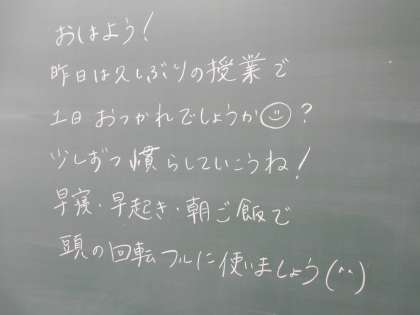 おはよう!
昨日は久しぶりの授業で
1日おつかれでしょうか☺?
少しずつ慣らしていこうね!
早寝・早起き・朝ご飯で
頭の回転フルに使いましょう(^^)